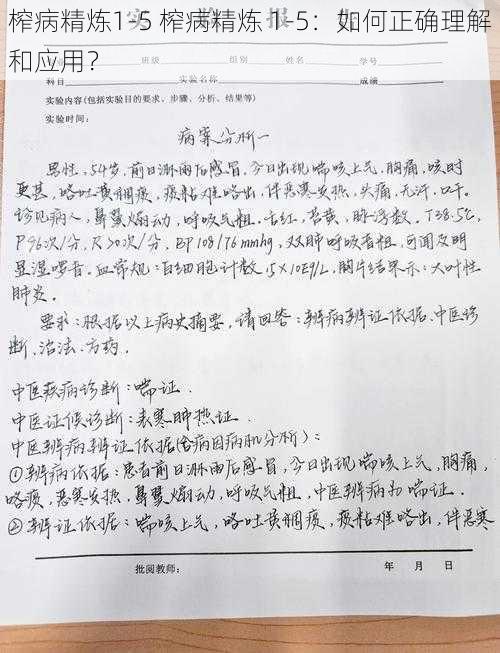 榨病精炼1-5 榨病精炼 1-5：如何正确理解
和应用？
实 验 报 告
班级 组别 姓名
科目 实验名称 成绩
实验内容(包括实验目的要求、步骤、分析、结果等)
实验时间：
病案分析一
男性，54岁，前日淋雨后感冒，今日出现喘咳上气，胸痛，咳时
更甚，咯吐黄稠痰，痰粘难咯出，伴恶寒发热，头痛，无汗，口干。
诊见病人，鼻翼煽动，呼吸气粗，舌红，苔黄，脉浮数。T38.5℃，
P96次/分，R>20次/分，BP108/76mmhg，双肺呼吸音粗，可闻及明
显湿啰音。血常规：白细胞计数15×10E9/L，胸片结果示：大叶性
肺炎。
要求：根据以上病史摘要，请回答：辨病辨证依据、中医诊
断、治法、方药。
中医疾病诊断：喘证．
中医证候诊断：表寒肺热证．
中医辨病辨证依据(含病因病机分析)：
①辨病依据：患者前日淋雨后感冒，今日出现喘咳上气，胸痛，
咯痰，恶寒发热，鼻翼煽动，呼吸气粗，中医辨病为喘证．
②辨证依据：喘咳上气，咯吐黄稠痰，痰粘难咯出，伴恶寒
批阅教师： 年 月 日